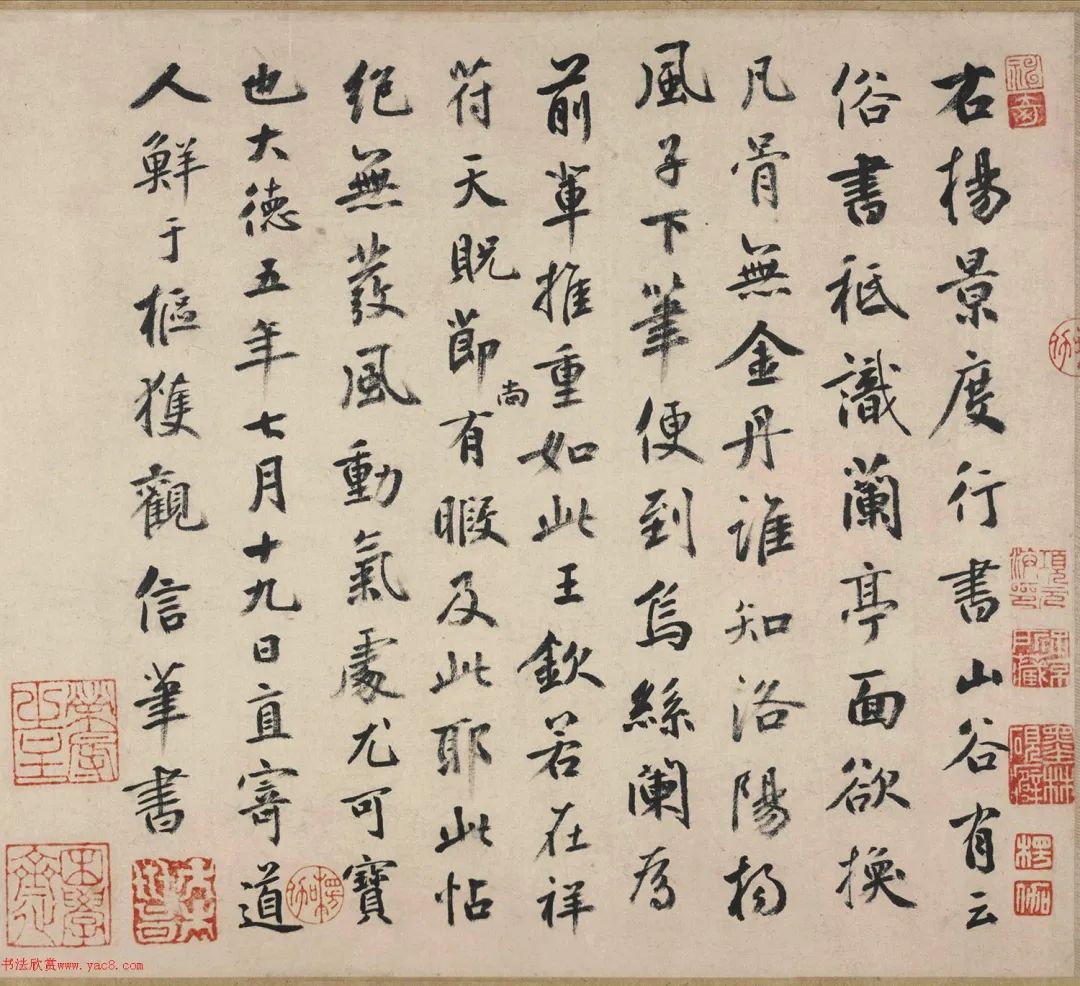 右楊景度行書山谷有云
俗書秖識蘭亭面欲換
凡骨無金丹誰知洛陽楊
風子下筆便到烏絲闌為
前輩推重如此王欽若在祥
符天貺節尚有暇及此耶此帖
絕無蹇風動氣處尤可寶
也大德五年七月十九日直寄道
人鮮于樞獲觀信筆書
項元
墨林
楞伽
楞伽
书法欣赏www.yac8.com